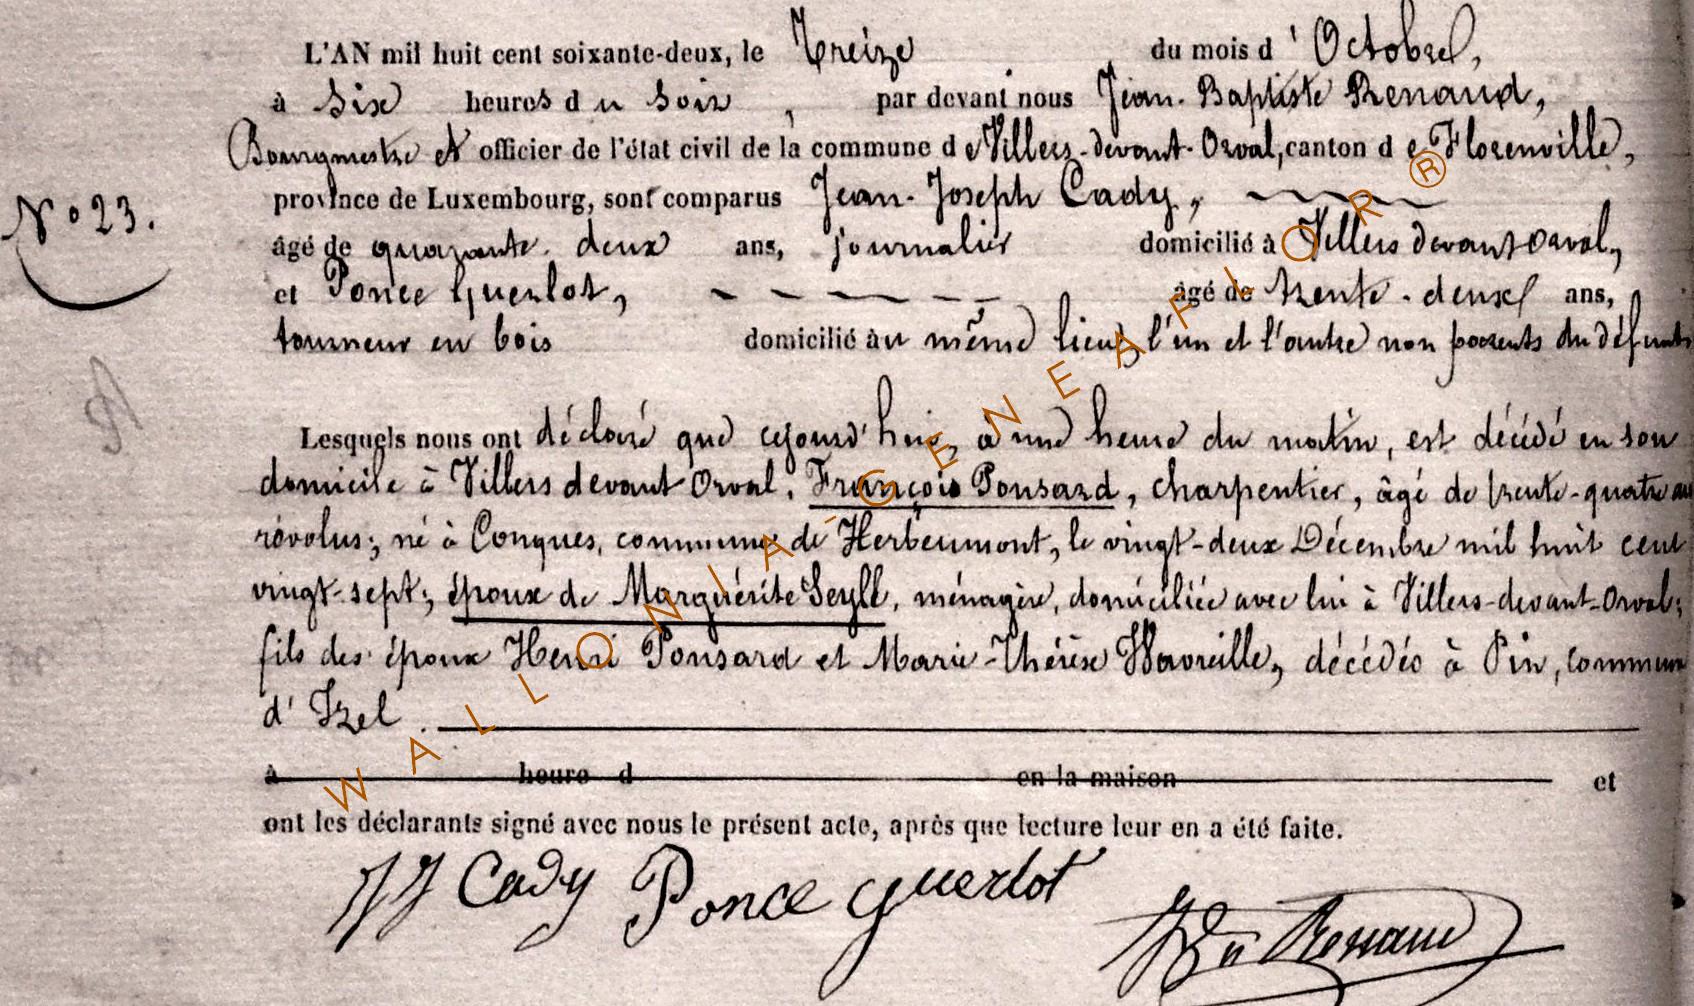 L'AN mil huit cent soixante-deux, le Treize du mois d'Octobre,
à six heures du soir, par devant nous Jean-Baptiste Renaud,
Bourgmestre et officier de l'état civil de la commune de Villers-devant-Orval, canton de Florenville,
province de Luxembourg, sont comparus Jean-Joseph Cady,
N° 23.
âgé de quarante-deux ans, journalier domicilié à Villers devant Orval,
et Ponce Guerlot, âgé de trente-deux ans,
tourneur en bois domicilié au même lieu, l'un et l'autre non parents du défunt
Lesquels nous ont déclaré que cejourd'hui, à une heure du matin, est décédé en son
domicile à Villers devant Orval, François Ponsard, charpentier, âgé de trente-quatre ans
révolus; né à Conques, commune de Herbeumont, le vingt-deux Décembre mil huit cent
vingt-sept; époux de Marguérite Seyll, ménagère, domiciliée avec lui à Villers-devant-Orval;
fils des époux Henri Ponsard et Marie-Thérèse Wavreille, décédés à Pin, commune
d'Izel.
à heure d en la maison et
ont les déclarants signé avec nous le présent acte, après que lecture leur en a été faite.
JJ Cady Ponce Guerlot
Renaud
WALLONIA-GENEAFLOR®